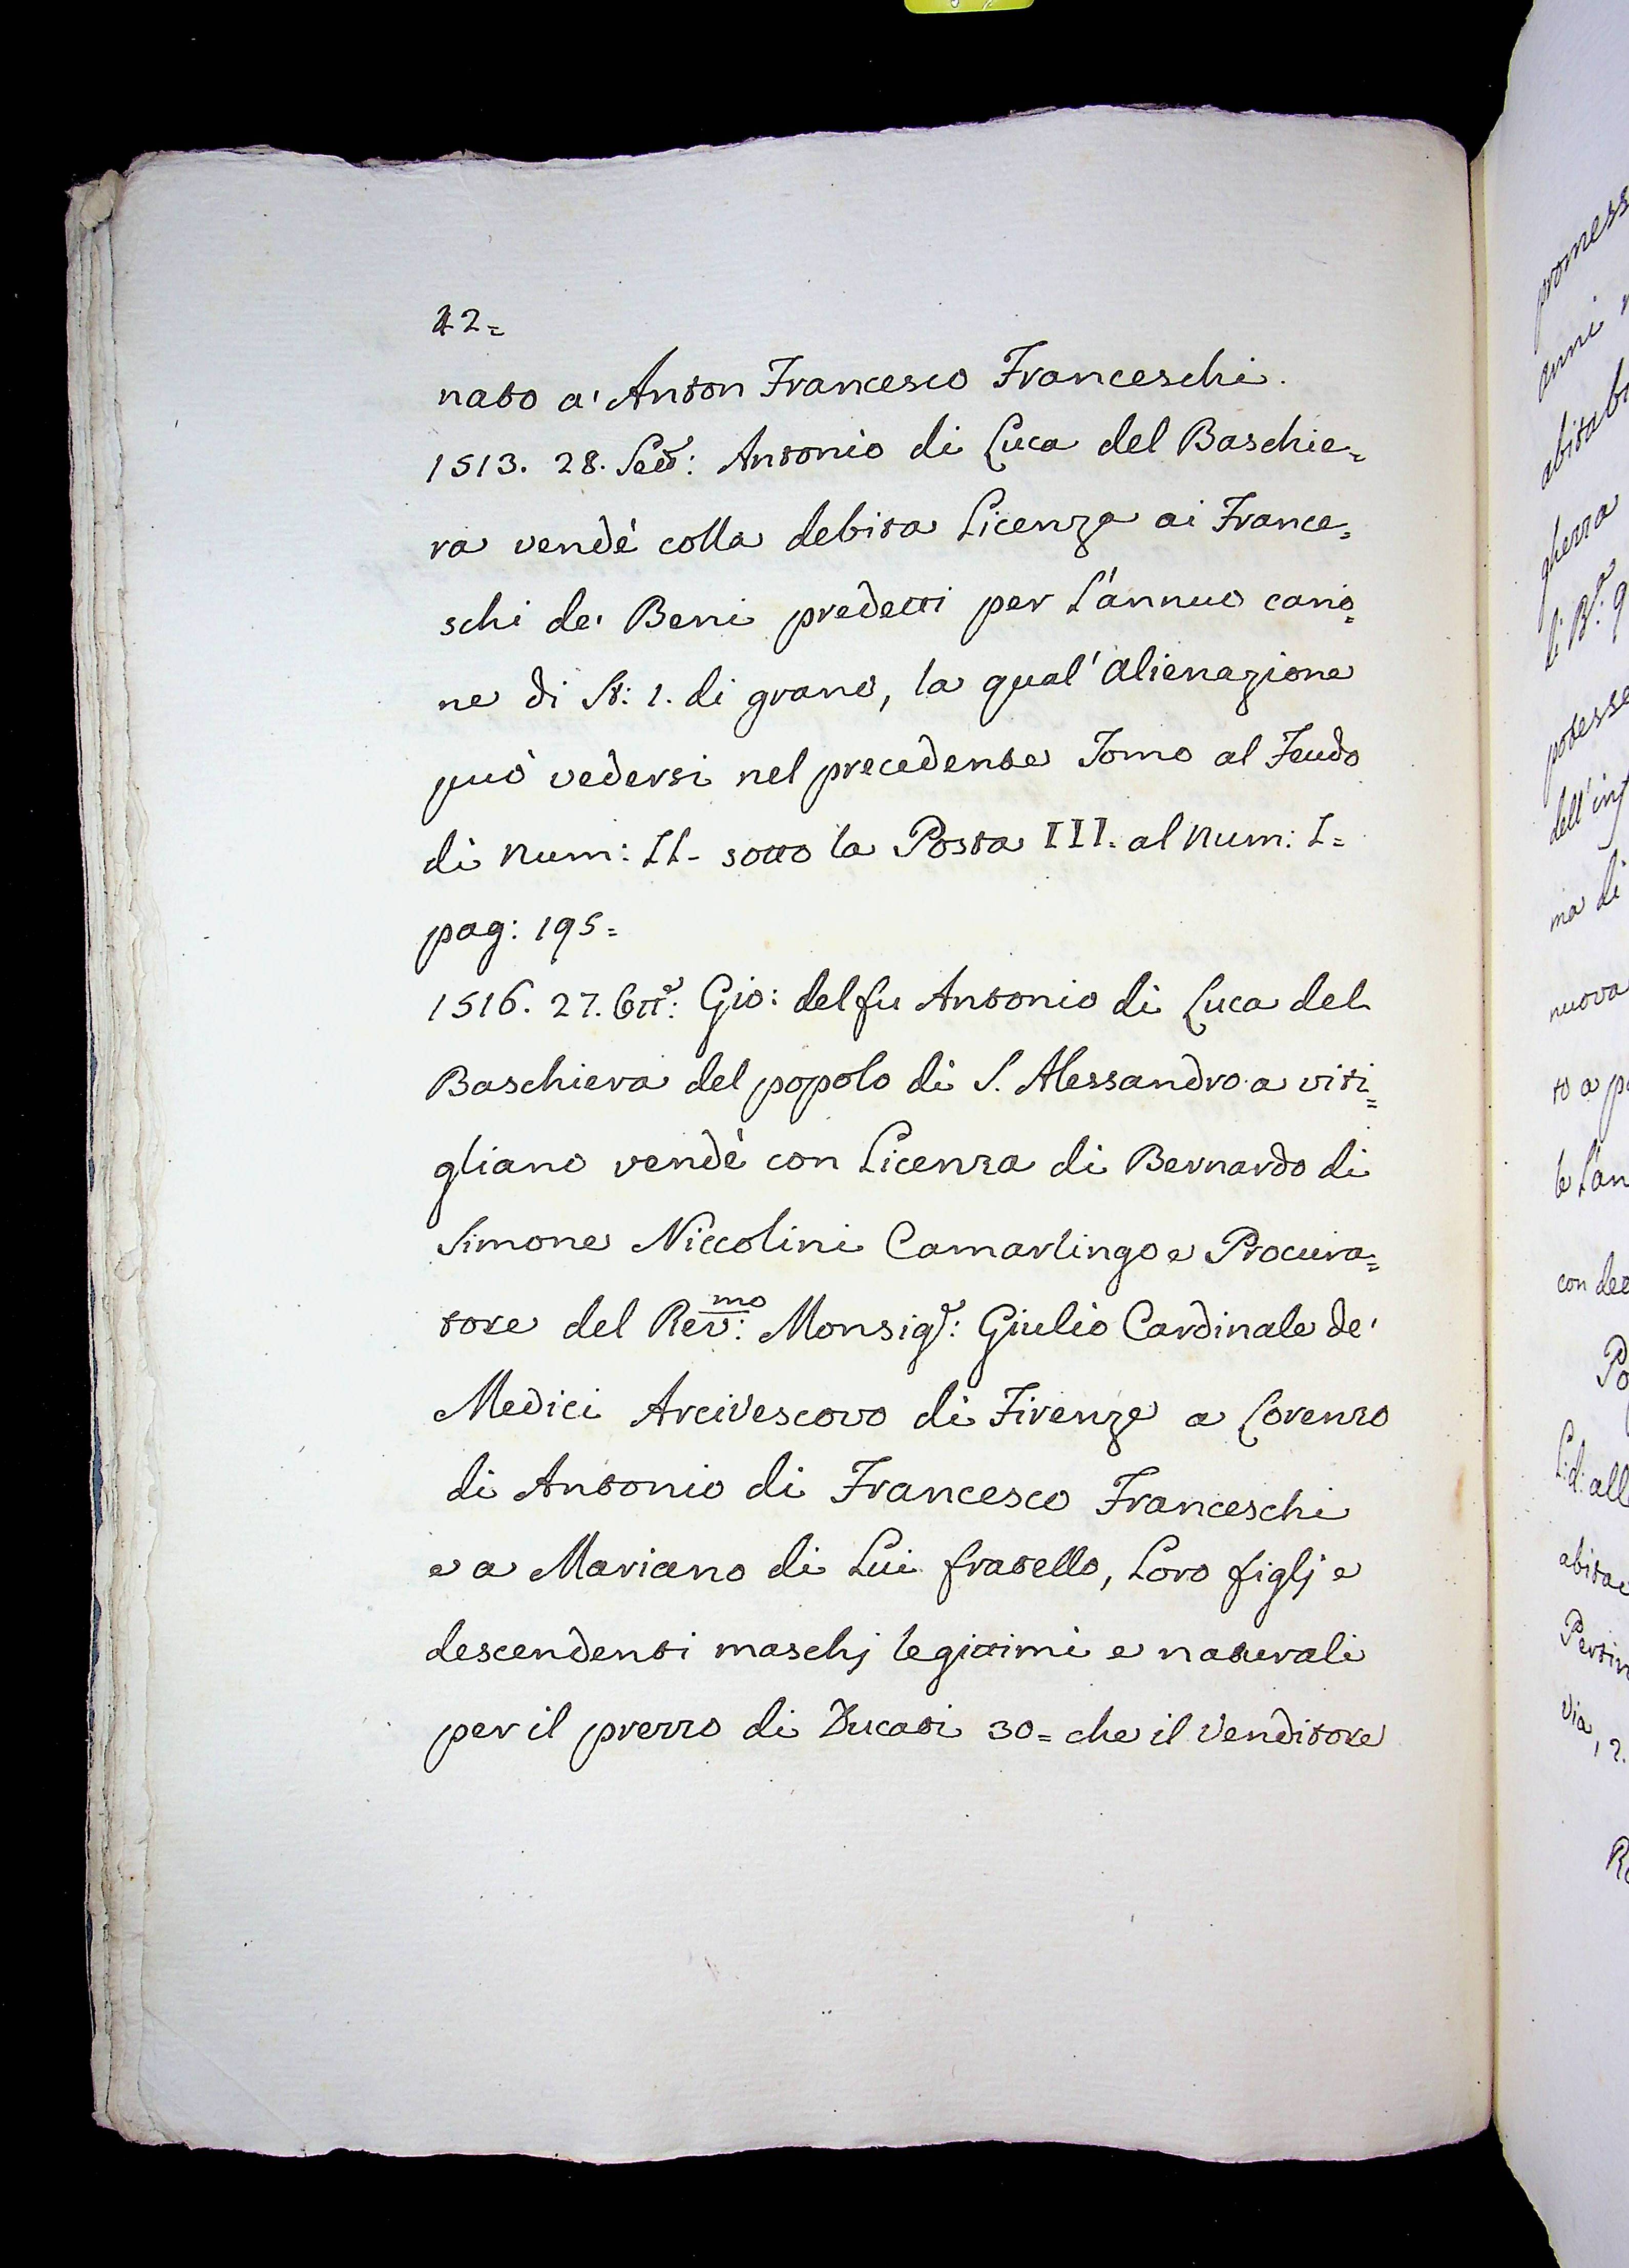 12=
nato a' Anton Francesco Franceschi.
1513. 28. Sett.e: Antonio di Luca del Baschie=
ra vendè colla debita Licenza ai France=
schi de' Beni predetti per l'annuo cano=
ne di St: 1. di grano, la qual' alienazione
può vedersi nel precedente Tomo al Feudo
di num: II- sotto la Posta III. al num: I=
pag: 195=
1516. 27. Ott.e: Gio: del fu Antonio di Luca del
Baschiera del popolo di S. Alessandro a viti=
gliano vendè con Licenza di Bernardo di
Simone Niccolini Camarlingo e Procura=
tore del Rev:mo Monsig.r: Giulio Cardinale de'
Medici Arcivescovo di Firenze a Lorenzo
di Antonio di Francesco Franceschi
e a Mariano di Lui fratello, Loro figlj e
descendenti maschj legittimi e naturali
per il prezzo di Ducati 30= che il Venditore
promess
anni
abitab
gherra
potesse
dell'inf
ma di
nuova
to a p
le l'an
con de
Po
all
abita
Pertin
via, 2.